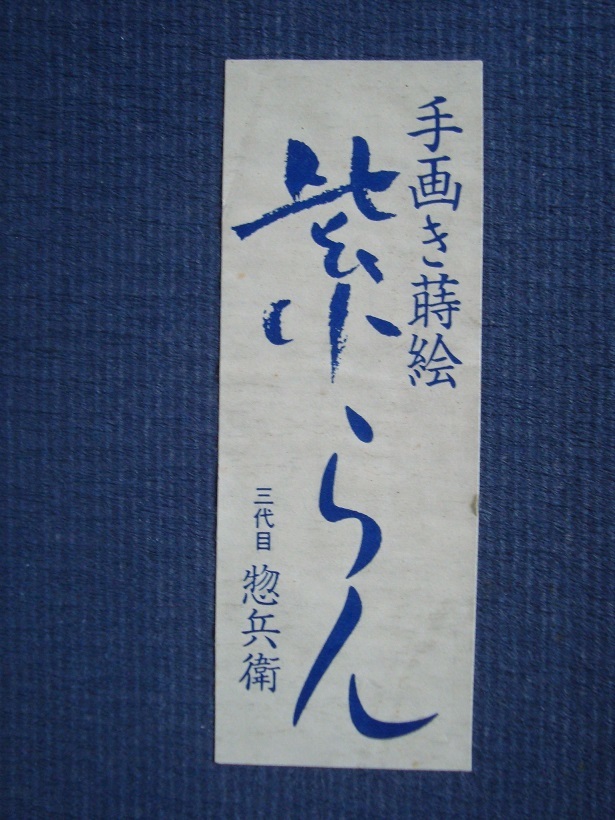 手画き蒔絵
紫らん
三代目 惣兵衛